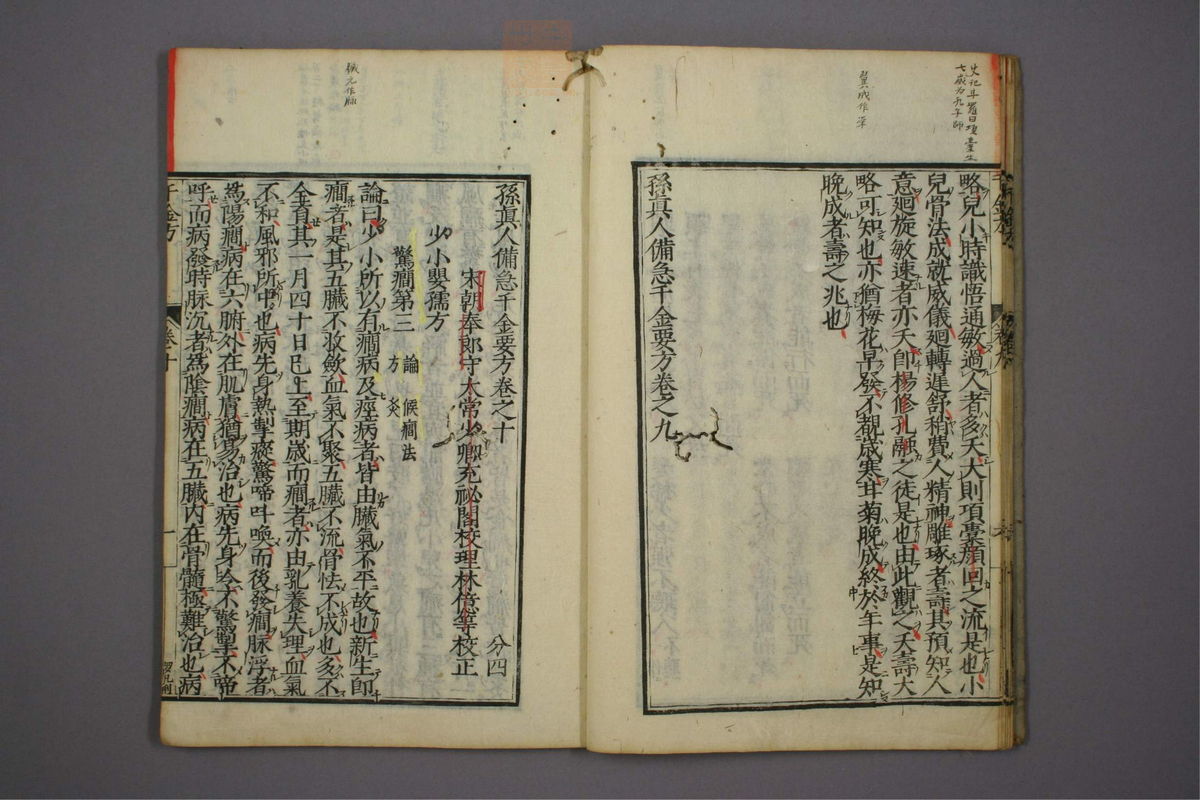 史記甘羅曰項橐生
七歳為孔子師
略兒小時識悟通敏過人者多夭大則項橐顔回之流是也小
兒骨法成就威儀廻轉遲舒稍費人精神雕琢者壽其預知人
意廻旋敏速者亦夭卽楊修孔融之徒是也由此觀之夭壽大
略可知也亦猶梅花早發不覩歳寒甘菊晚成終於年事是知
晚成者壽之兆也
孫眞人備急千金要方卷之九
孫眞人備急千金要方卷之十
分四
宋朝奉郎守太常少卿充祕閣校理林億等校正
少小嬰孺方
驚癇第三
論 候癇法
方 灸
論曰少小所以有癇病及痓病者皆由臟氣不平故也新生卽
癇者是其五臟不收斂血氣不聚五臟不流骨怯不成也多不
全育其一月四十日已上至期歳而癇者亦由乳養失理血氣
不和風邪所中也病先身熱掣瘲驚啼叫喚而後發癇脉浮者
爲陽癇病在六腑外在肌膚猶易治也病先身冷不驚掣不啼
呼而病發時脉沉者爲陰癇病在五臟内在骨髓極難治也病
千金方
卷十
一